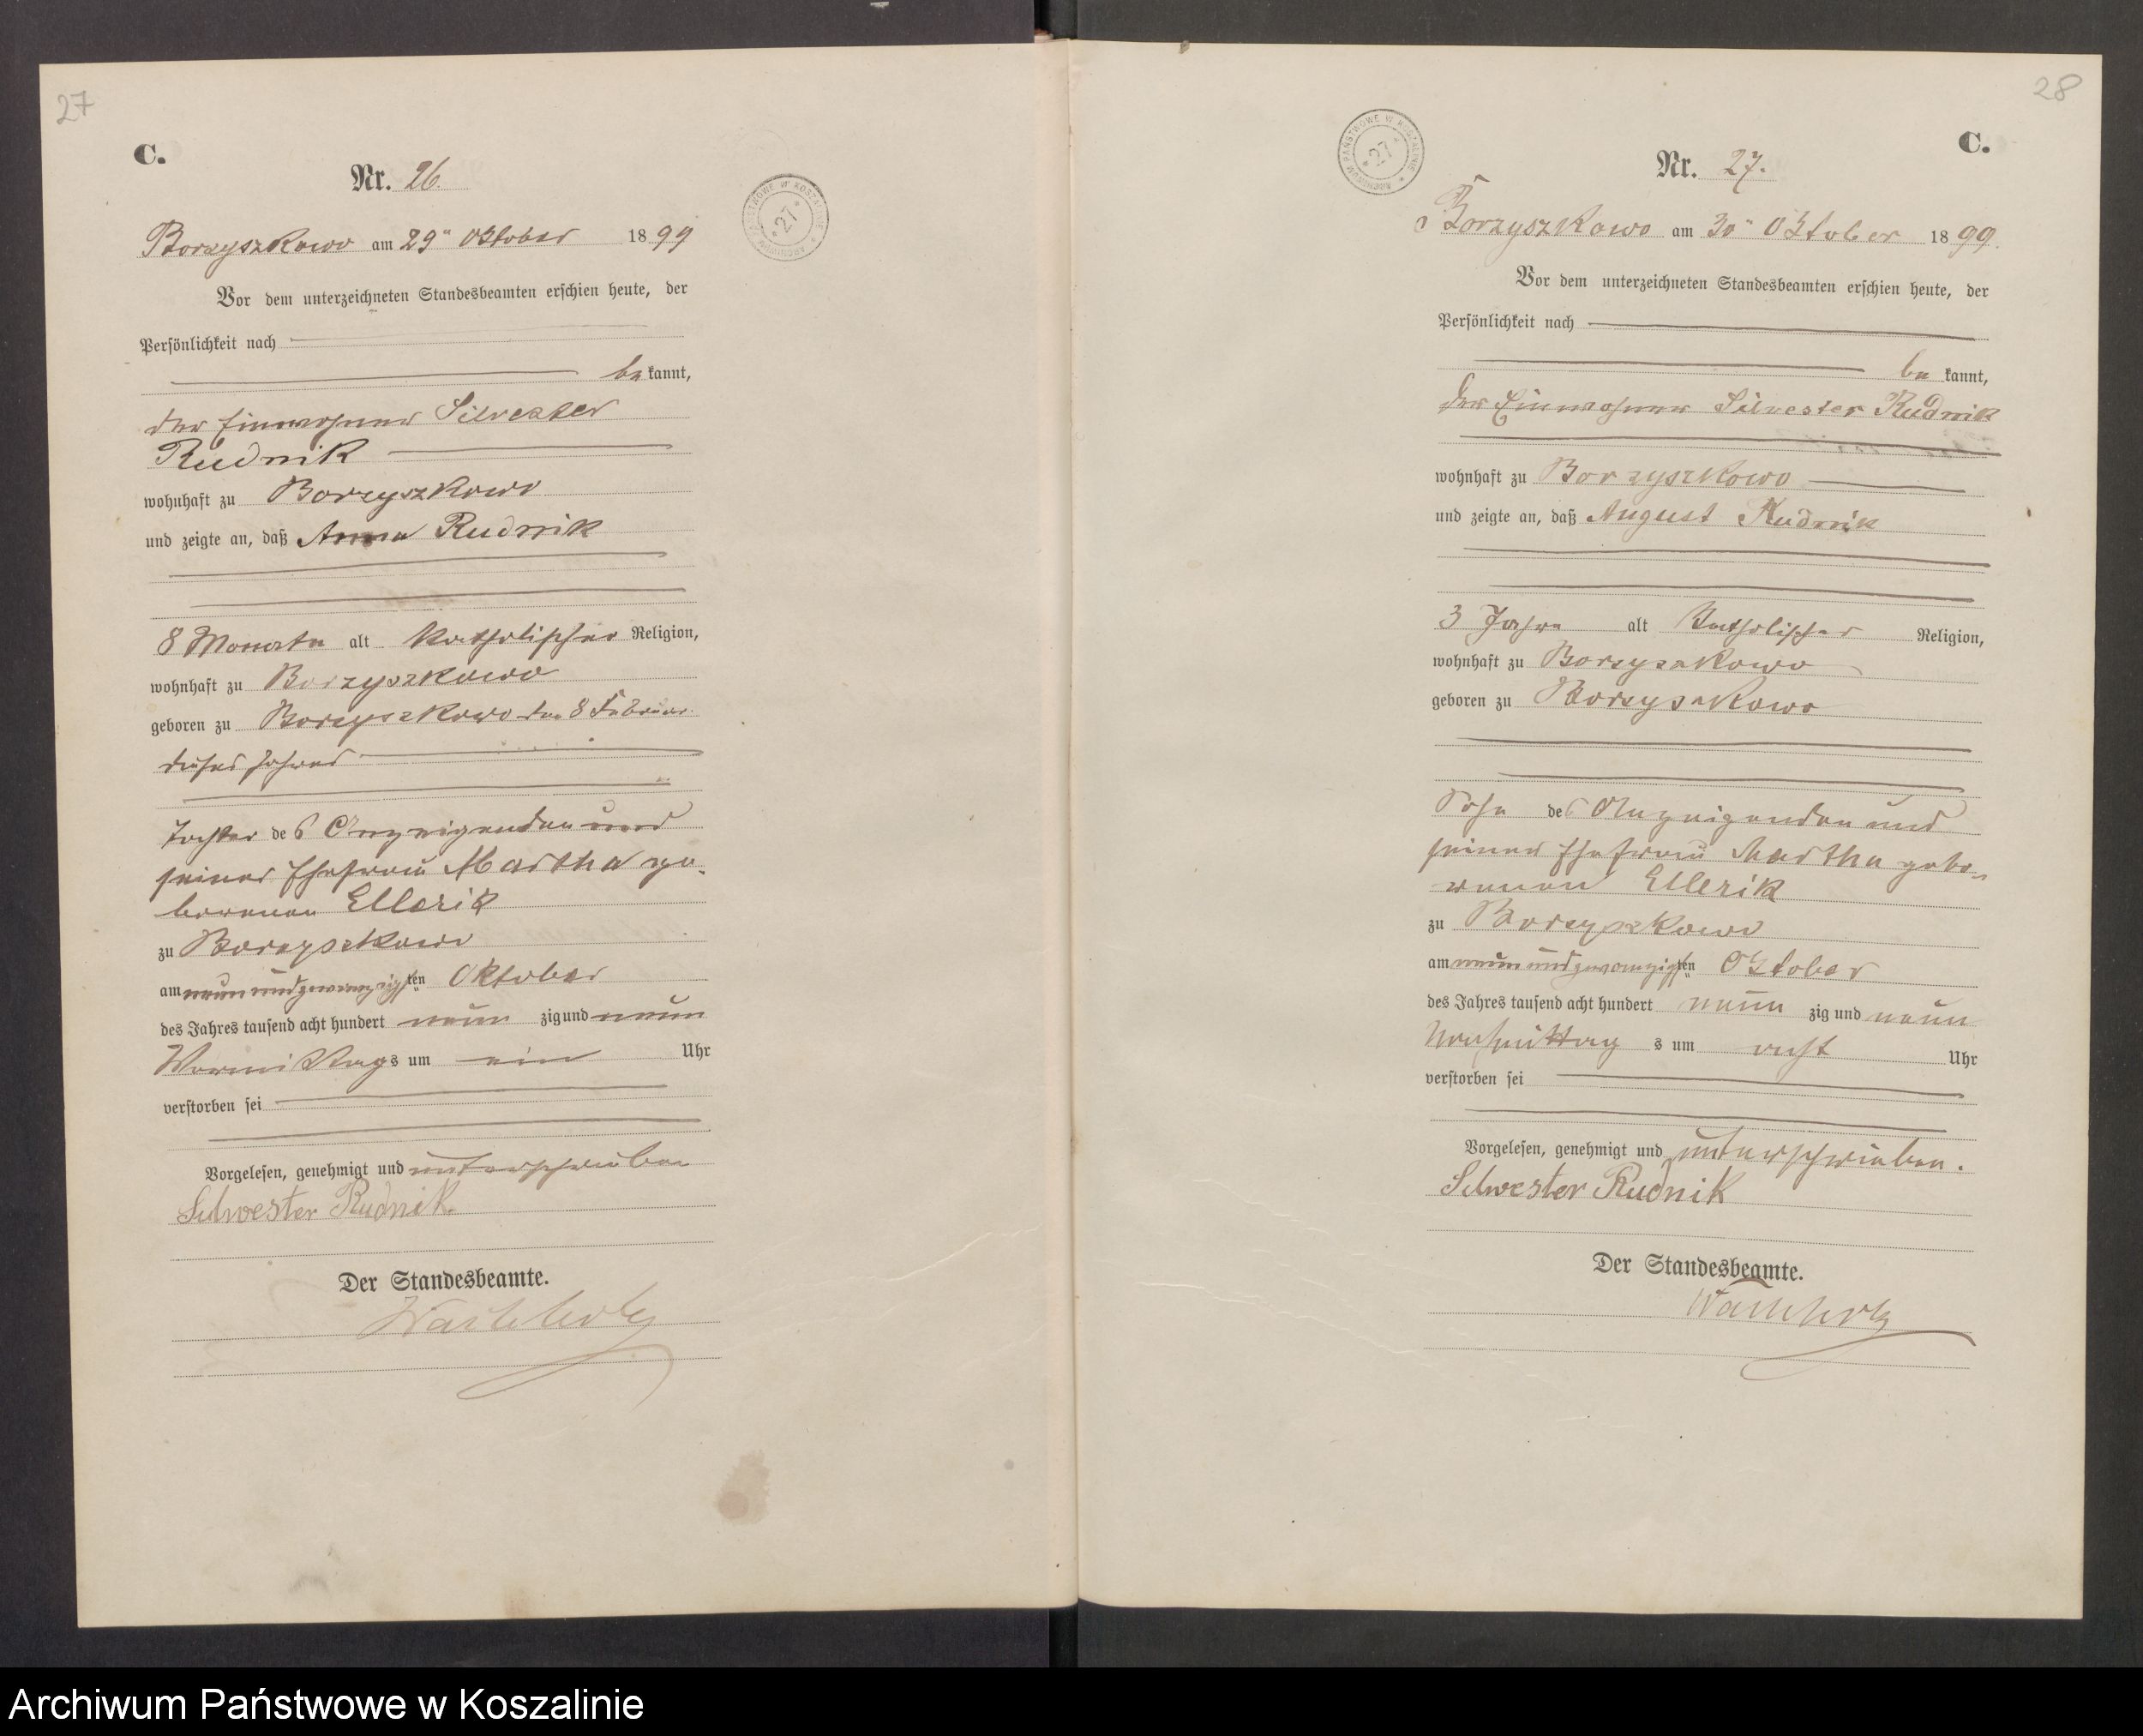 27
C.
Nr. 26.
ARCHIWUM PAŃSTWOWE W KOSZALINIE * 27 *
Borzyszkowo am 29ⁿ Oktober 1899
Vor dem unterzeichneten Standesbeamten erschien heute, der
Persönlichkeit nach
be kannt,
der Einwohner Silvester
Rudnik
wohnhaft zu Borzyszkowo
und zeigte an, daß Anna Rudnik
8 Monate alt katholischer Religion,
wohnhaft zu Borzyszkowo
geboren zu Borzyszkowo den 8 Februar
dieses Jahres
Tochter des Anzeigenden und
seiner Ehefrau Martha ge-
borenen Ellerik
zu Borzyszkowo
am neunundzwanzigsten Oktober
des Jahres tausend acht hundert neun zig und neun
Vormittags um ein Uhr
verstorben sei
Vorgelesen, genehmigt und unterschrieben
Silwester Rudnik.
Der Standesbeamte.
28
C.
ARCHIWUM PAŃSTWOWE W KOSZALINIE * 27 *
Nr. 27.
Borzyszkowo am 30ⁿ Oktober 1899.
Vor dem unterzeichneten Standesbeamten erschien heute, der
Persönlichkeit nach
be kannt,
der Einwohner Silvester Rudnik
wohnhaft zu Borzyszkowo
und zeigte an, daß August Rudnik
3 Jahre alt katholischer Religion,
wohnhaft zu Borzyszkowo
geboren zu Borzyszkowo
Sohn des Anzeigenden und
seiner Ehefrau Martha gebo-
renen Ellerik
zu Borzyszkowo
am neunundzwanzigsten Oktober
des Jahres tausend acht hundert neun zig und neun
Nachmittag s um acht Uhr
verstorben sei
Vorgelesen, genehmigt und unterschrieben.
Silwester Rudnik
Der Standesbeamte.
Archiwum Państwowe w Koszalinie